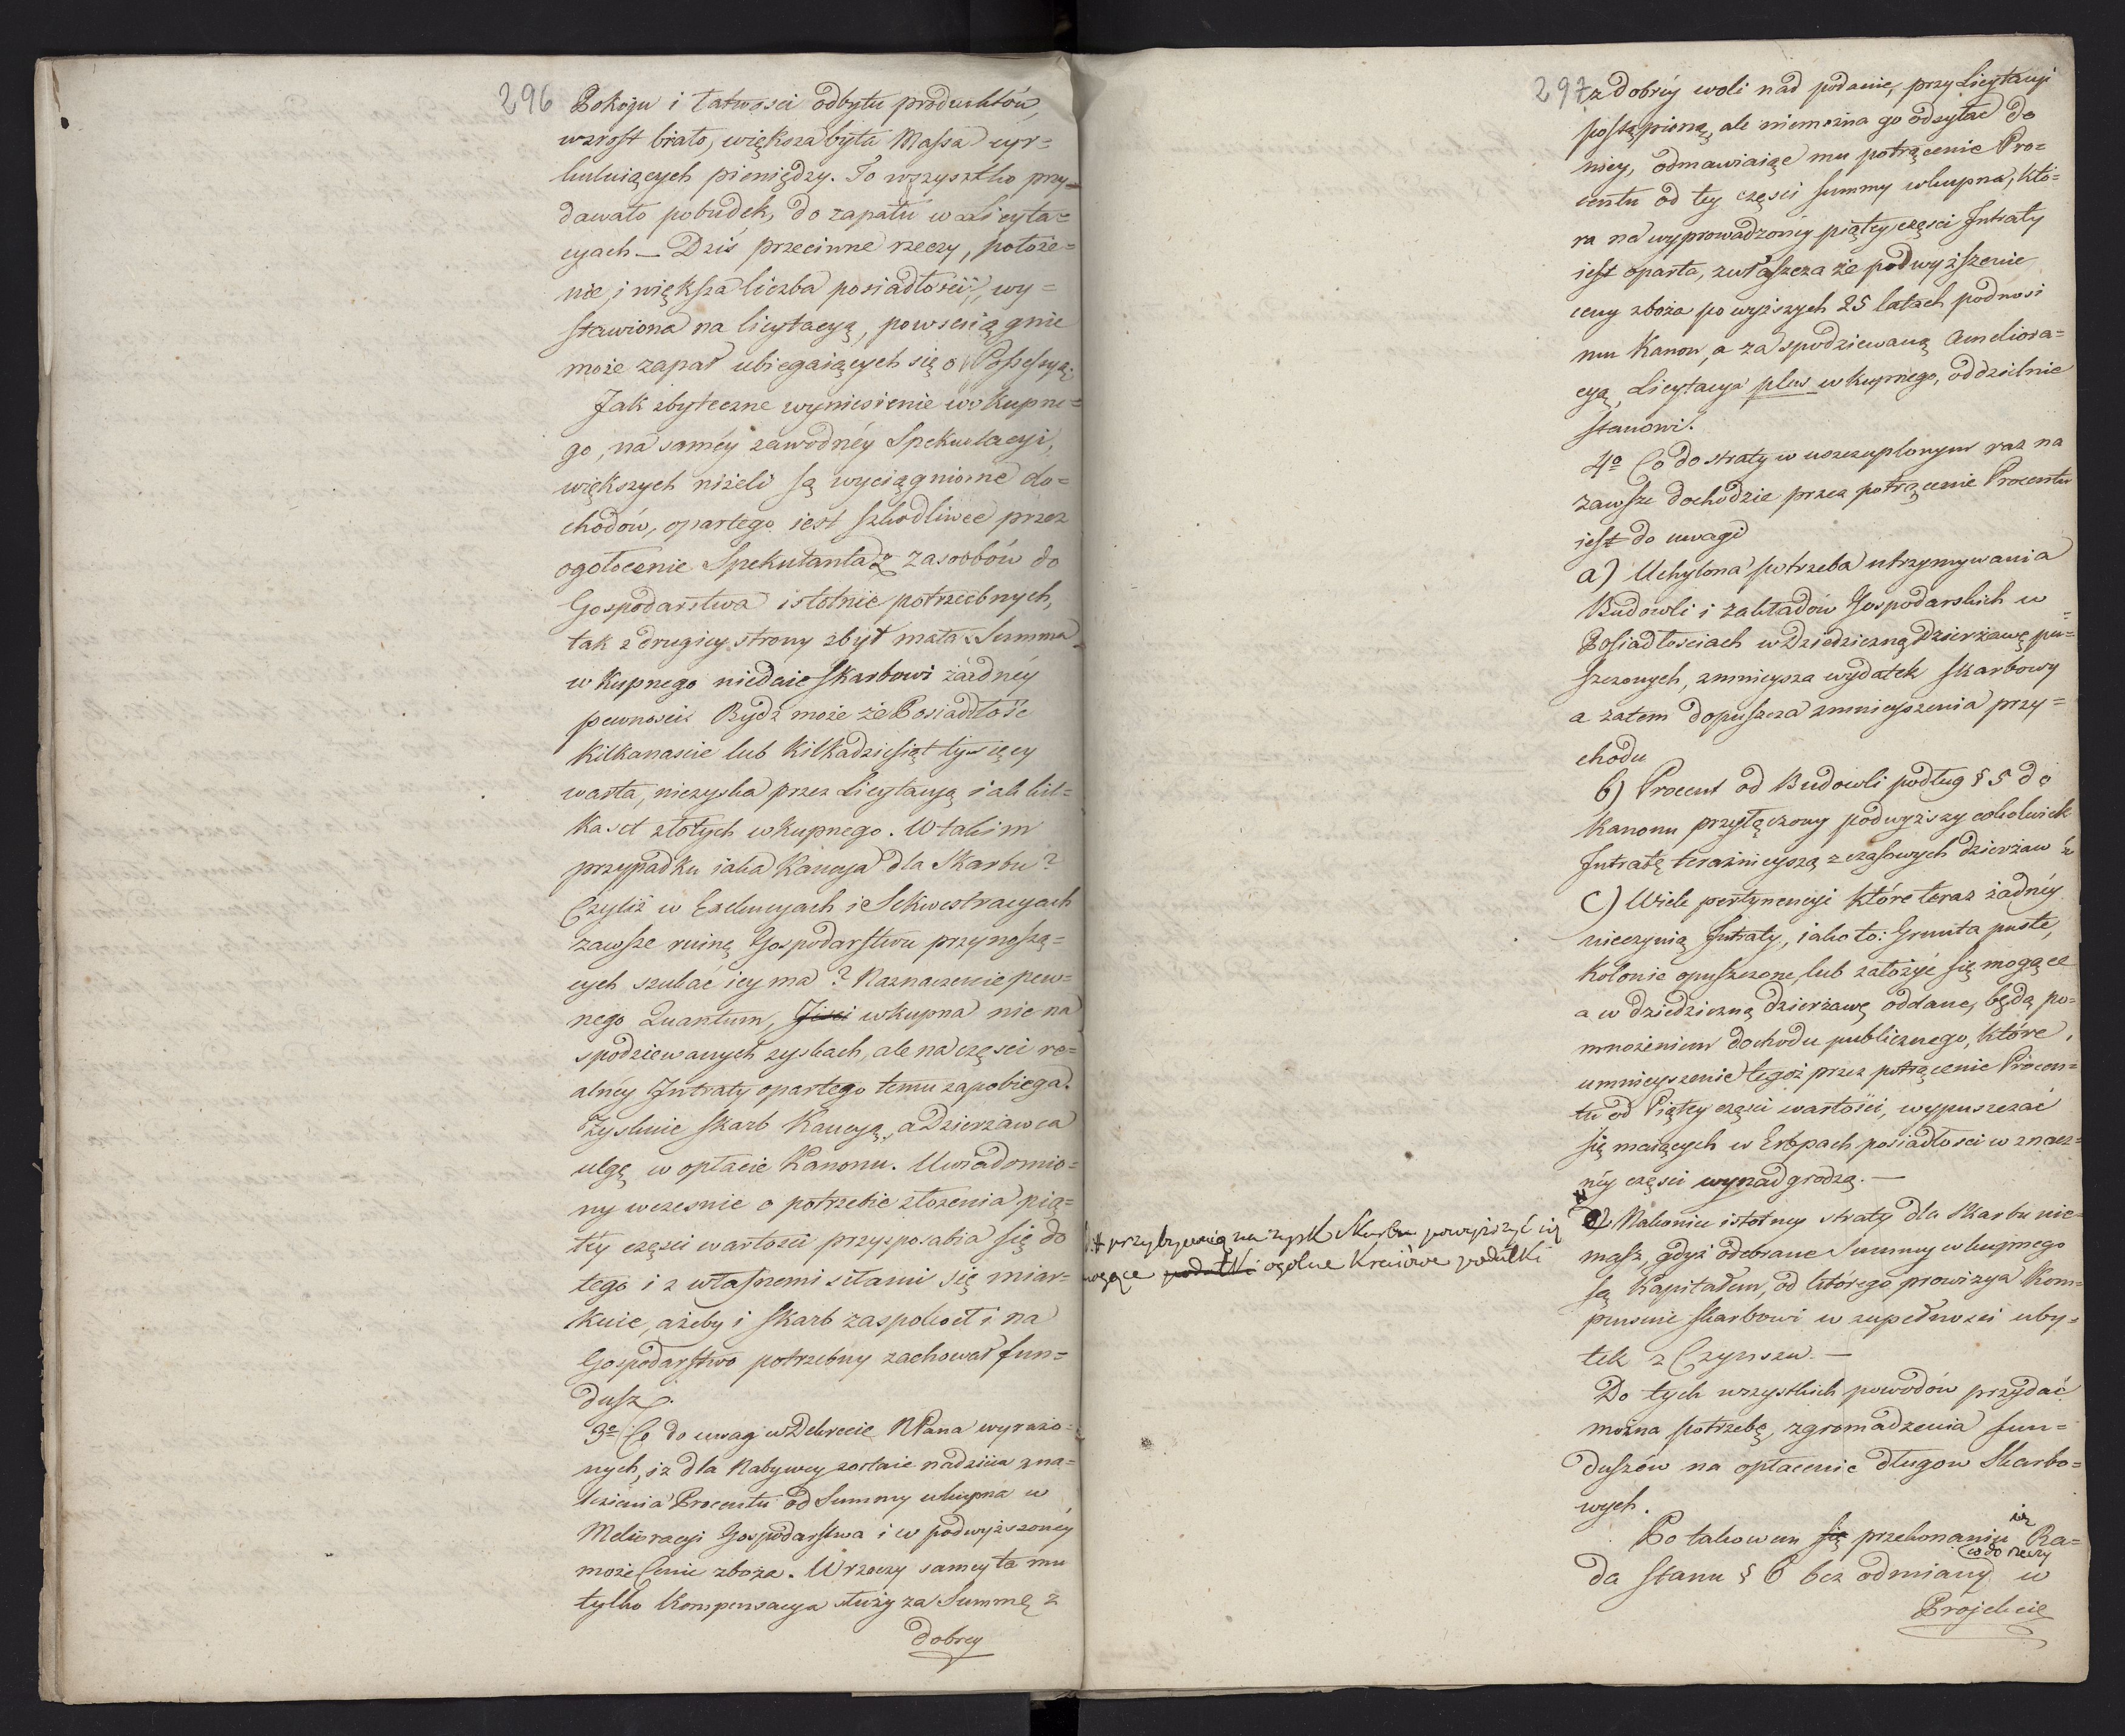 296
Pokoju i łatwości odbytu produktów,
wzrost brało, większa była Massa cyr=
kuluiących pieniędzy. To wszystko przy=
dawało pobudek, do zapału w Licyta=
cyach — Dziś przeciwne rzeczy, położe=
nie, i większa liczba posiadłości, wy=
stawiona na licytacyą, powściągnie
może zapał ubiegaiących się o Possessyą.
Jak zbyteczne wyniesienie wkupne=
go, na saméy zawodnéy Spekulacyi,
większych niżeli są wyciągnione do=
chodów, opartego iest szkodliwe przez
ogołocenie Spekulanta z zasobów do
Gospodarstwa istotnie potrzebnych,
tak z drugiey strony zbyt mała Summa
wkupnego niedaie Skarbowi żadnéy
pewności. Bydź może że Posiadłość
kilkanaście lub kilkadziesiąt tysięcy
warta, niezyska przez Licytacyą iak kil=
kaset złotych wkupnego. W takim
przypadku iaka Kaucya dla Skarbu?
Czyliż w Exekucyach i Sekwestracyach
zawsze ruinę Gospodarstwu przynoszą=
cych szukać iey ma? Naznaczenie pew=
nego Quantum, wkupna nie na
spodziewanych zyskach, ale na części re=
alnéy Intraty opartego temu zapobiega.
Zyskuie Skarb Kaucyą, a Dzierżawca
ulgę w opłacie Kanonu. Uwiadomio=
ny wcześnie o potrzebie złożenia pią=
téy części wartości przysposabia się do
tego i z własnemi siłami się miar=
kuie, ażeby i Skarb zaspokoił i na
Gospodarstwo potrzebny zachował fun=
dusz.
3o Co do uwag w Dekrecie NPana wyrażo=
nych, iż dla Nabywcy zostaie nadzieia zna=
lezienia Procentu od Summy wkupna w
Melioracyi Gospodarstwa i w podwyższonéy
może Cenie zboża. W rzeczy saméy ta mu
tylko kompensacya służy za Summę z
dobrey
297
z dobréy woli nad podanie, przy Licytacyi
postąpioną, ale niemożna go odsyłać do
niey, odmawiaiąc mu potrącenie Pro=
centu od tey części Summy wkupna, któ=
ra na wyprowadzonéy piątey części Intraty
iest oparta, zwłaszcza że podwyższenie
ceny zboża po wyższych 25 latach podnosi
mu Kanon, a za spodziewaną Ameliora=
cyą, Licytacya plus wkupnego, oddzielnie
stanowi.
4o Co do straty w uszczuplonym raz na
zawsze dochodzie przez potrącenie Procentu
iest do uwagi
a) Uchylona potrzeba utrzymywania
Budowli i zakładów Gospodarskich w
Posiadłościach w Dziedziczną Dzierżawę pu=
szczonych, zmnieysza wydatek Skarbowy
a zatem dopuszcza zmnieyszenia przy=
chodu
b) Procent od Budowli podług § 5 do
Kanonu przyłączony podwyższy cokolwiek
Intratę teraźnieyszą z czasowych dzierżaw
c) Wiele pertynencyi które teraz żadnéy
nieczynią Intraty, iako to: Grunta puste,
Kolonie opuszczone, lub założyć się mogące
a w dziedziczną dzierżawę oddane, będą po=
mnożeniem dochodu publicznego, które,
umnieyszenie tegoż przez potrącenie Procen=
tu od Piątey części wartości, wypuszczać
się maiących w Erbpach posiadłości w znacz=
néy części wynadgrodzą. —
przybywaią na zysk Skarbu powiększyć się
mogące podatki ogólne Kraiowe podatki
d) Nakoniec istotney straty dla Skarbu nie=
masz, gdyż odebrane Summy wkupnego
są Kapitałem, od którego prowizya Kom=
pensuie Skarbowi w zupełności uby=
tek z Czynszu. —
Do tych wszystkich powodów przydać
można potrzebę, zgromadzenia fun=
duszów na opłacenie długów Skarbo=
wych.
Po takowem się przekonaniu Ra=
co do rzeczy
da Stanu § 6 bez odmiany w
Projekcie